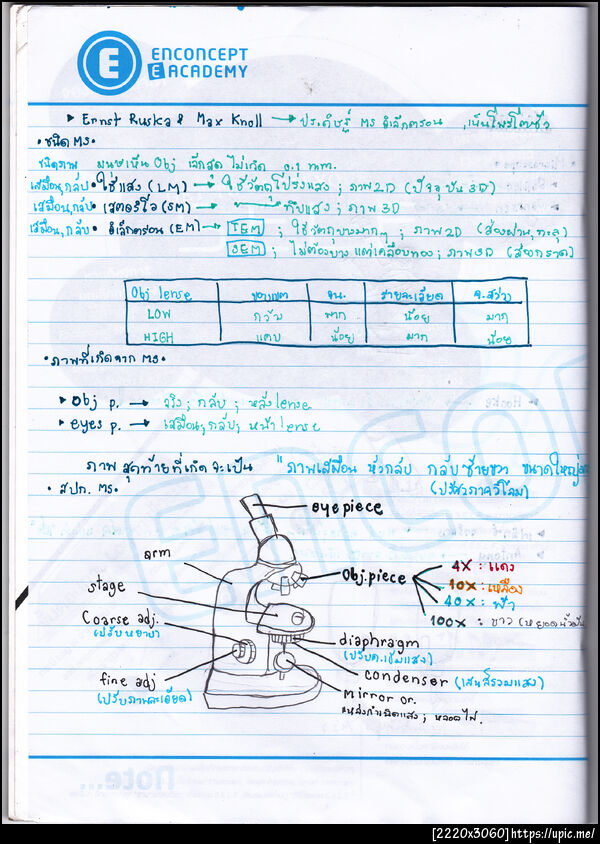 ENCONCEPT
E ACADEMY
▸ Ernst Ruska & Max Knoll → ประดิษฐ์ MS อิเล็กตรอน
• ชนิด MS •
ชนิดภาพ มนุษย์เห็น Obj เล็กสุด ไม่เกิด 0.1 mm.
เสมือน,กลับ • ใช้แสง (LM) → ใช้วัตถุโปร่งแสง ; ภาพ 2D (ปัจจุบัน 3D)
เสมือน,กลับ • สเตอริโอ (SM) → ทึบแสง ; ภาพ 3D
เสมือน,กลับ • อิเล็กตรอน (EM) → TEM ; ใช้วัตถุบางมากๆ ; ภาพ 2D (ส่องผ่าน,ทะลุ)
SEM ; ไม่ต้องบาง แต่เคลือบทอง ; ภาพ 3D (ส่องกราด)
Obj lense ขอบเขต จน. รายละเอียด ค.สว่าง
LOW กว้าง มาก น้อย มาก
HIGH แคบ น้อย มาก น้อย
• ภาพที่เกิดจาก MS •
▸ Obj p. → จริง ; กลับ ; หลัง lense
▸ eyes p. → เสมือน; กลับ; หน้า lense
ภาพสุดท้ายที่เกิดจะเป็น "ภาพเสมือน หัวกลับ กลับซ้ายขวา ขนาดใหญ่
(ปริศวภาควิโลม)
• สปก. MS •
eyepiece
arm
Obj.piece
4X : แดง
10X : เหลือง
40X : ฟ้า
100X : ขาว (หยอดน้ำมัน
stage
Coarse adj.
(ปรับหยาบ)
diaphragm
(ปรับค.เข้มแสง)
condenser (เลนส์รวมแสง)
fine adj
(ปรับภาพละเอียด)
mirror or.
แหล่งกำเนิดแสง ; หลอดไฟ.
Note...
[2220x3060]https://upic.me/